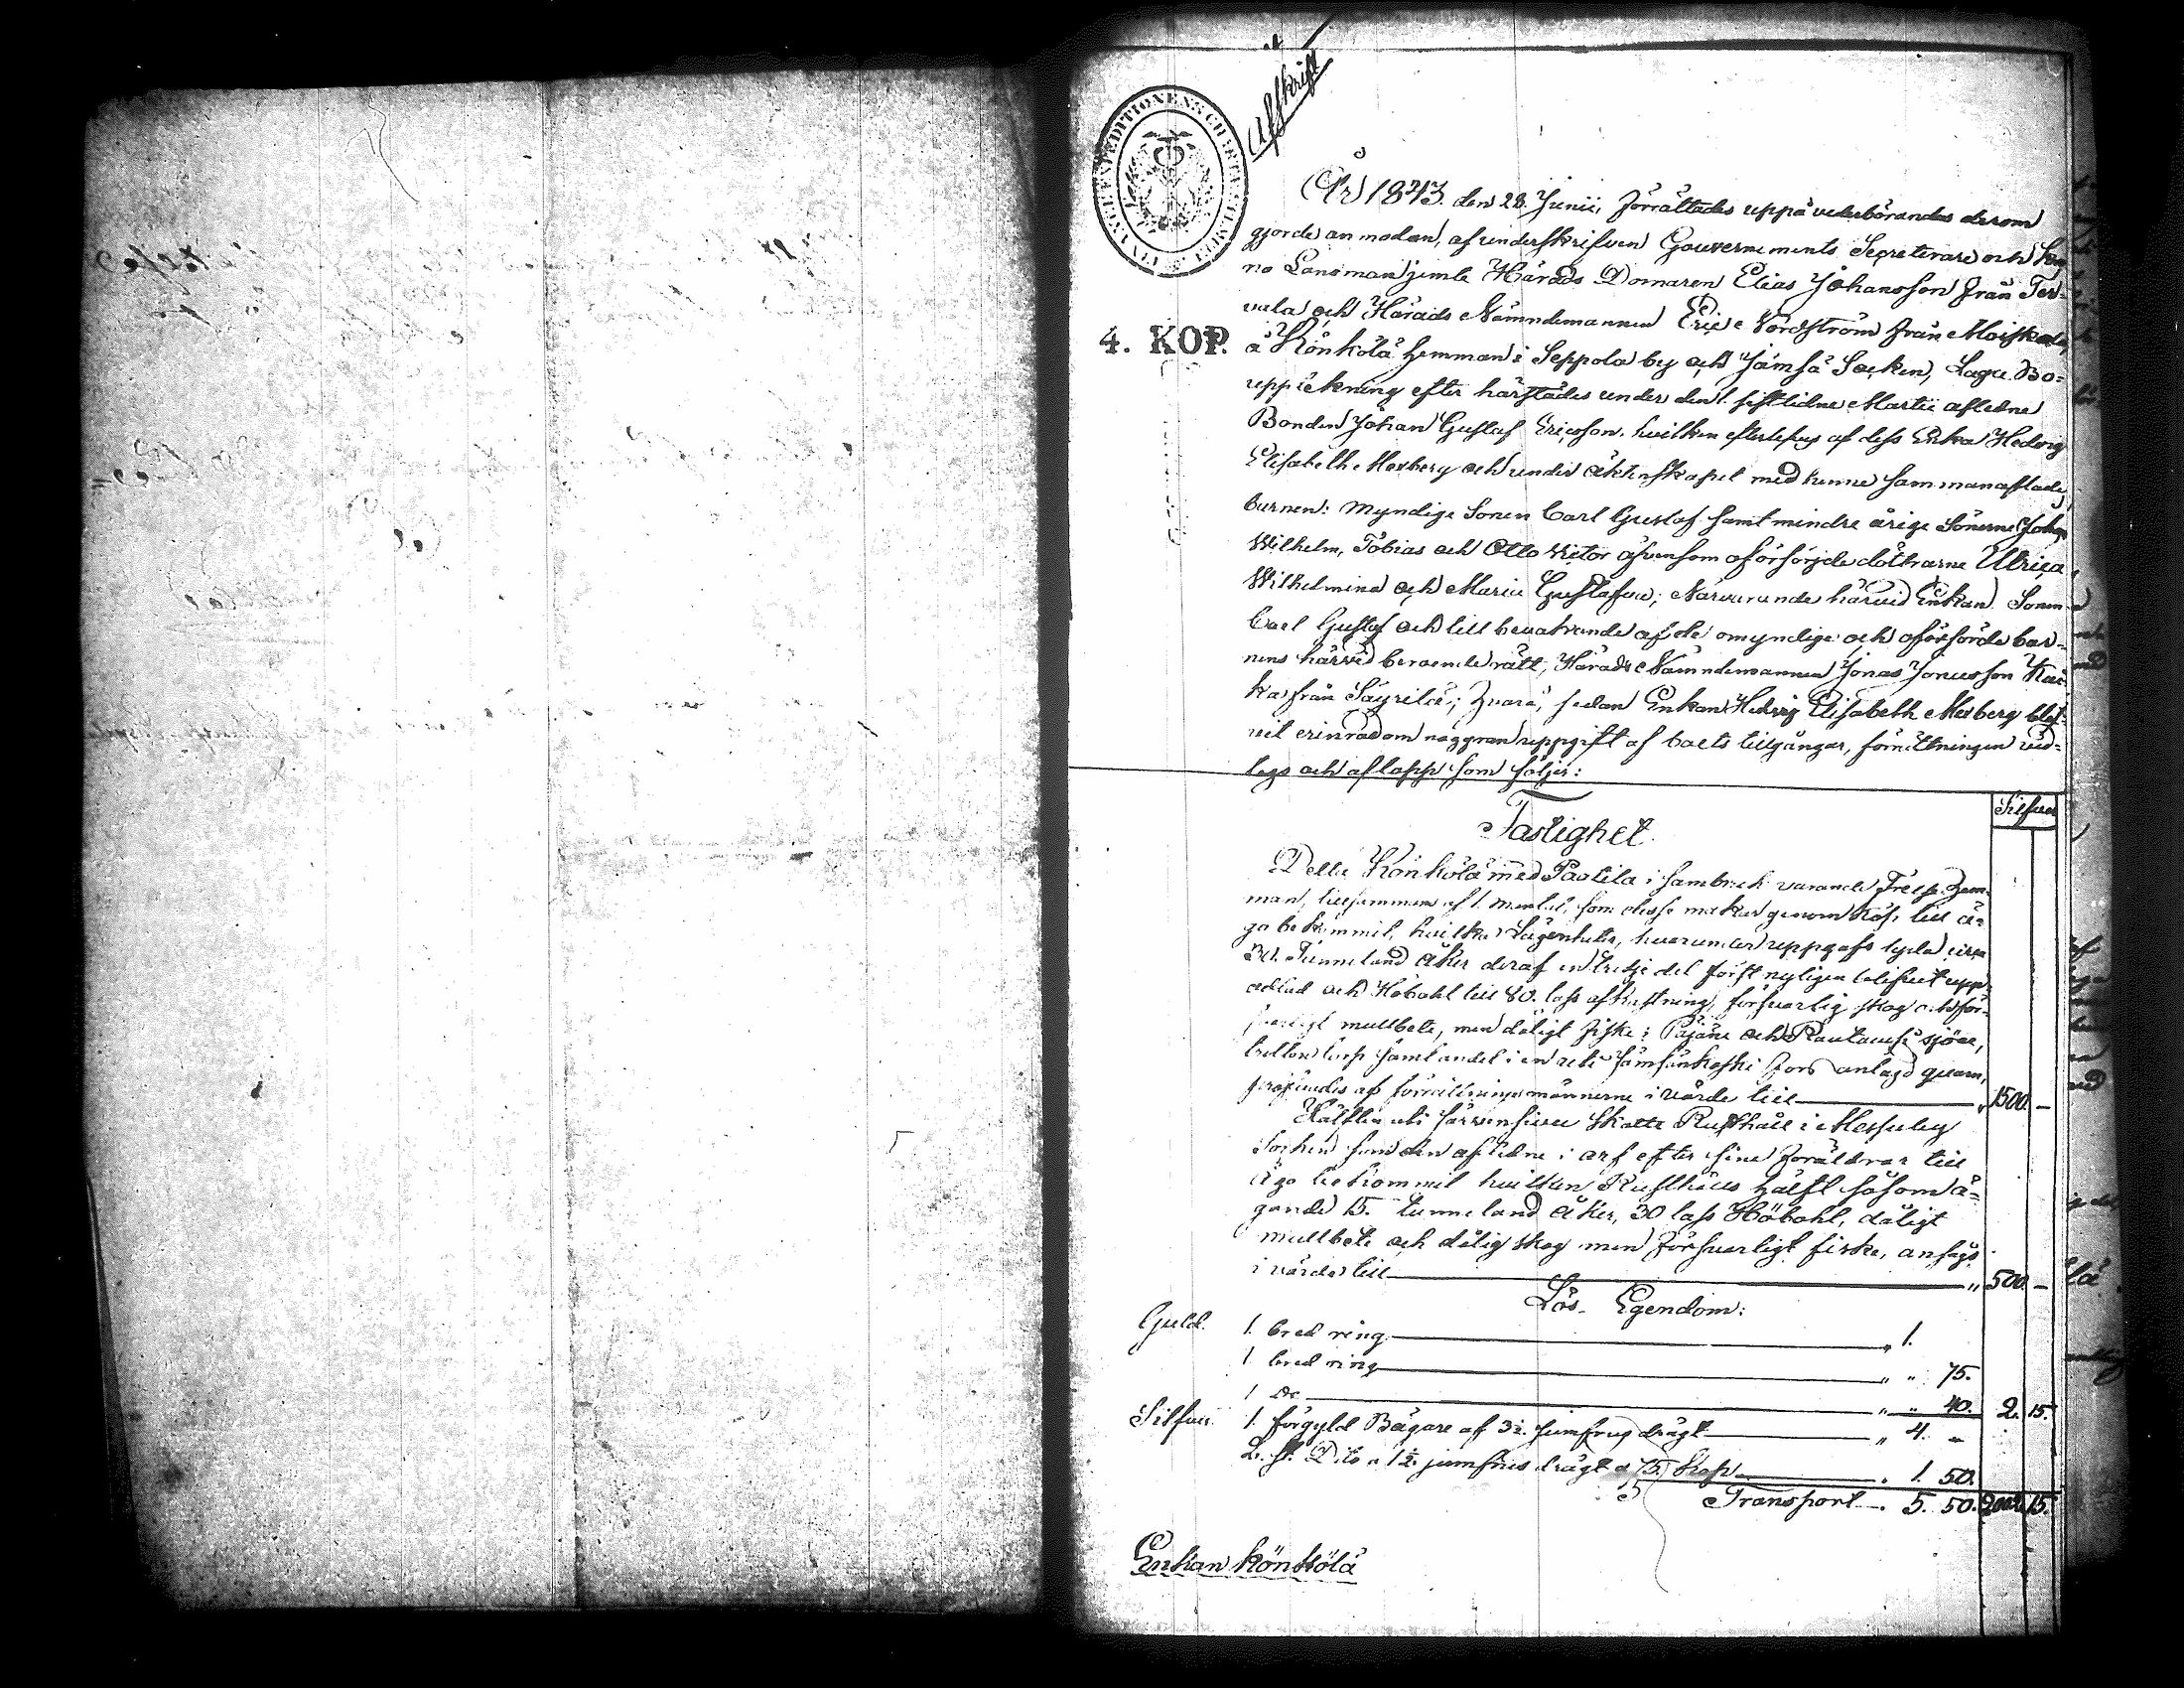 Afskrift
4. KOP.
År 1843. den 28. Junii, förrättades uppå vederbörandes derom
gjorde anmodan, af underskrifven Gouvernements Secreterare och Kro
no Länsman jemte Härads Domaren Elias Johansson från Ter-
vala och Härads Nämndemannen Eric Nordström från
å Könkölä hemman i Seppola by och Jämsä Socken, Laga Bo-
uppteckning efter härstädes under den 1. sistlidne Martii aflidne
Bonden Johan Gustaf Ericsson. hvilken efterlefves af dess Enka Hedvig
Elisabeth Mexberg och under äktenskapet med henne sammanaflade
barnen: myndige Sonen Carl Gustaf samt mindre årige Sönerne Johan
Wilhelm, Tobias och Otto Victor äfvensom oförsörjde döttrarne Ulrica
Wilhelmina och Maria Gustafva; Närvarande härvid Enkan Sonen
Carl Gustaf och till bevakande af de omyndige och oförsörde bar-
nens härvid beroende rätt, Härads Nämndemannen Jonas Jonasson
ka från Säyrilä; hvarå, sedan Enkan Hedvig Elisabeth Mexberg blif-
vit erinrad om noggran uppgift af boets tillgångar, förrättningen vid-
togs och aflopp som följer:
Silfver
Fastighet.
Detta Könkölä med Paatila i sambruk varande Frelse hem-
man, tillsammans af 1. mantal, som desse makar genom köp till ä-
go bekommit, hvilka Lägenheter, hvarunder uppgafs lyda cirka
30. Tunneland åker deraf en tredje del först nyligen blifvit upp-
odlad och Höbohl till 80. lass afkastning, försvarlig skog och för-
svarligt mullbete, men dåligt fiske i Päjäne och Rautavesi sjöar,
trellon torp samt andel i en uti Jämsänkoski fors anlagd qvarn,
pröfvades af förrättningsmännerne i värde till 1500. -
Hälften uti Särvensivu Skatte Rusthåll i Messuby
Socken som den aflidne i arf efter sine föräldrar till
ägo bekommit hvilken Rusthålls hälft såsom ä-
gande 15. tunneland åker, 30 lass Höbohl, dåligt
mullbete och dålig skog men försvarligt fiske, ansågs
i värde till 500. -
Lös- Egendom:
Guld. 1. bred ring " 1.
1 bred ring " " 75.
1 Do " " 40. 2. 15.
Silfver. 1. förgyld Bägare af 3½ jumfrus drägt " 4. -
2. st. Dito a 1½ jumfrus drägt a 75 Kop. " 1. 50.
Transport . 5. 50. 2002. 15.
Enkan Könkölä